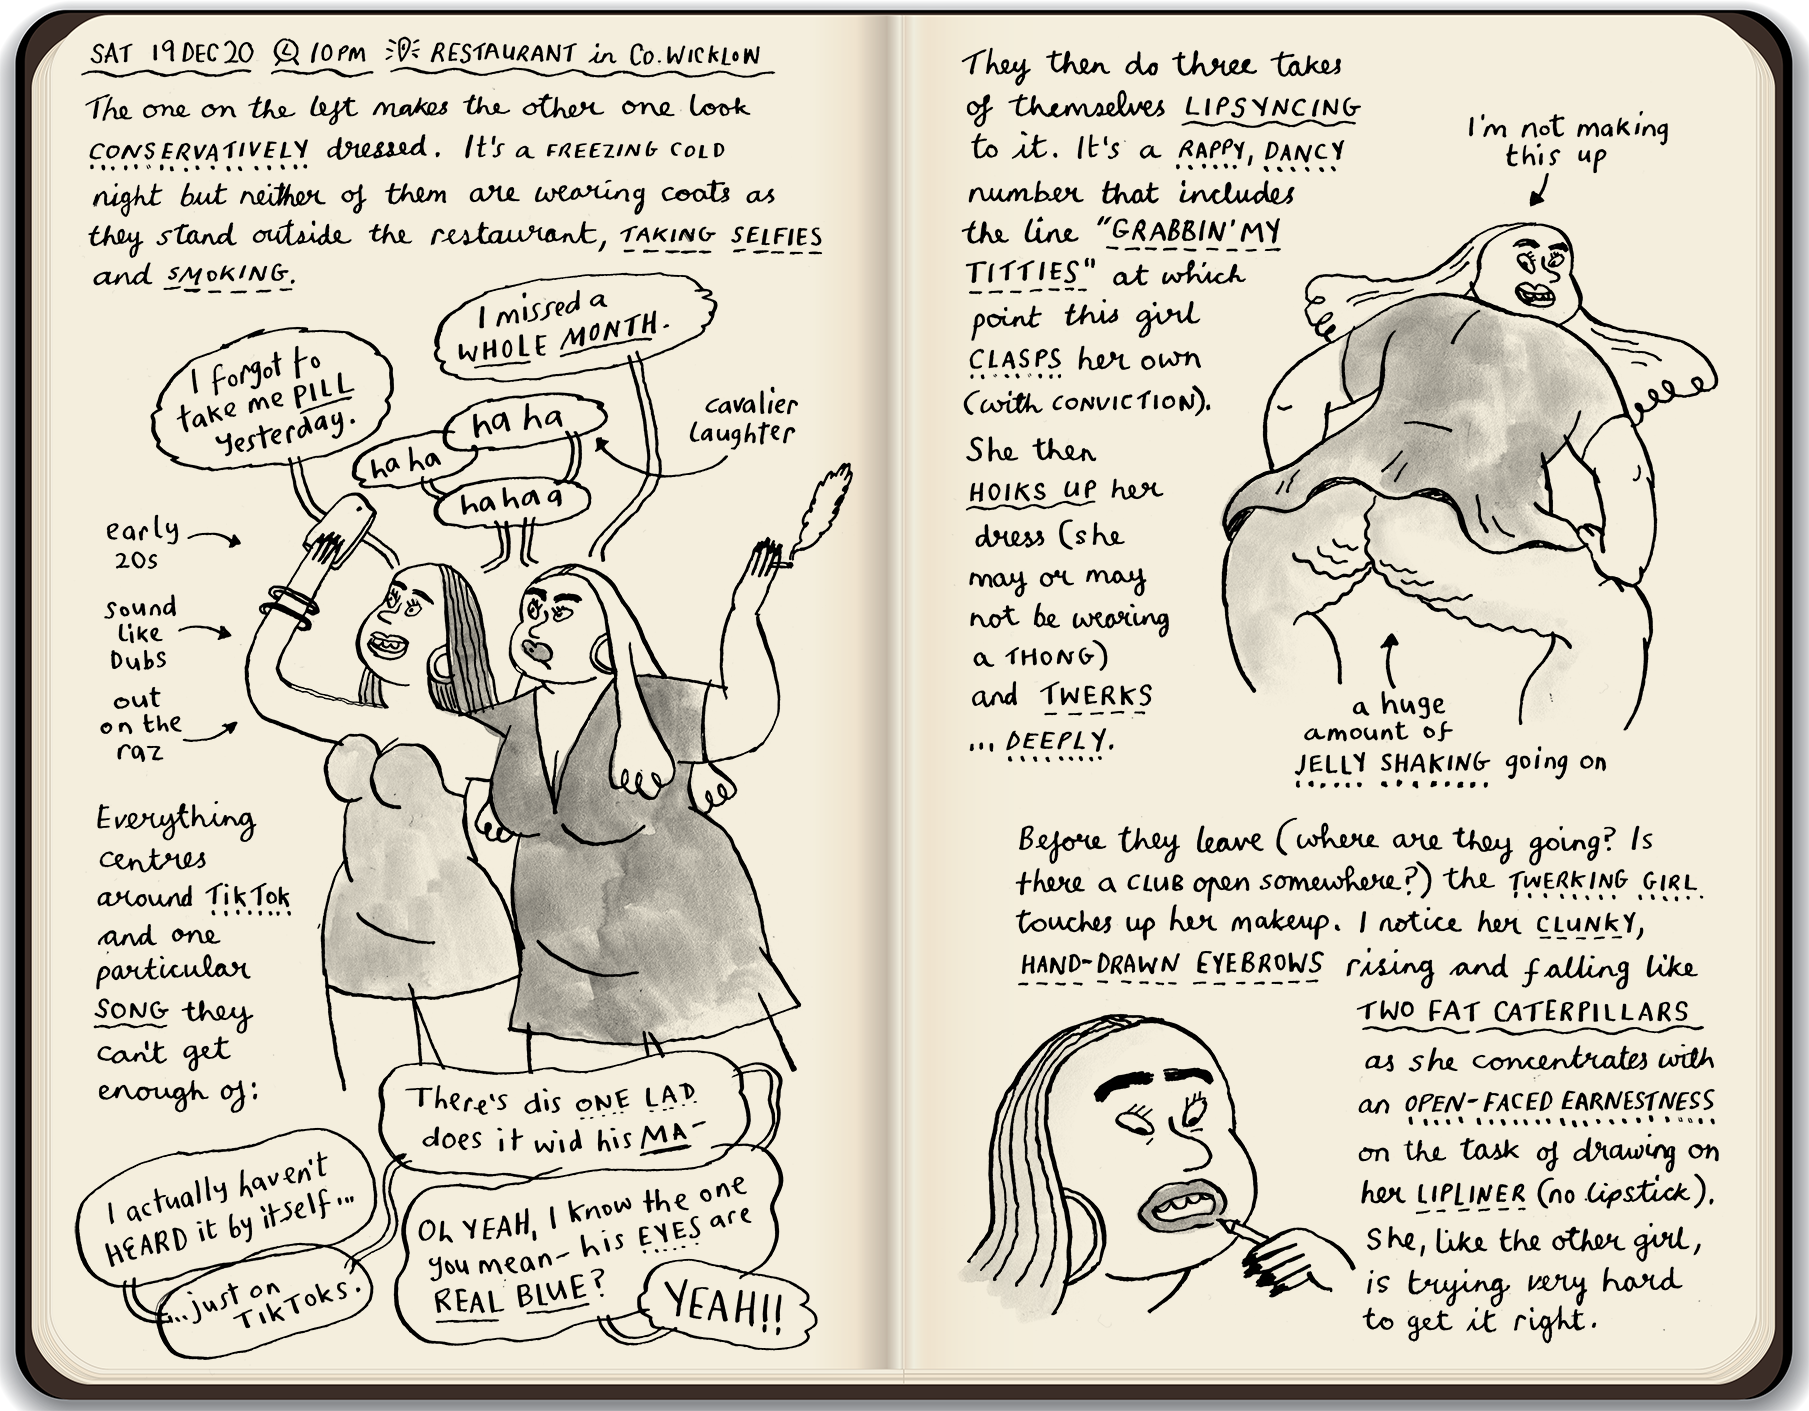 SAT 19 DEC 20 10PM RESTAURANT in Co. WICKLOW
The one on the left makes the other one look
CONSERVATIVELY dressed. It's a FREEZING COLD
night but neither of them are wearing coats as
they stand outside the restaurant, TAKING SELFIES
and SMOKING.
I forgot to
take me PILL
yesterday.
I missed a
WHOLE MONTH.
ha ha
ha ha
ha ha a
cavalier
laughter
early
20s
sound
like
Dubs
out
on the
raz
Everything
centres
around TikTok
and one
particular
SONG they
can't get
enough of:
There's dis ONE LAD
does it wid his MA-
I actually haven't
HEARD it by itself...
...just on
TikToks.
Oh YEAH, I know the one
you mean - his EYES are
REAL BLUE?
YEAH!!
They then do three takes
of themselves LIPSYNCING
to it. It's a RAPPY, DANCY
number that includes
the line "GRABBIN' MY
TITTIES" at which
point this girl
CLASPS her own
(with CONVICTION).
She then
HOIKS UP her
dress (she
may or may
not be wearing
a THONG)
and TWERKS
... DEEPLY.
I'm not making
this up
a huge
amount of
JELLY SHAKING going on
Before they leave (where are they going? Is
there a CLUB open somewhere?) the TWERKING GIRL
touches up her makeup. I notice her CLUNKY,
HAND-DRAWN EYEBROWS rising and falling like
TWO FAT CATERPILLARS
as she concentrates with
an OPEN-FACED EARNESTNESS
on the task of drawing on
her LIPLINER (no lipstick).
She, like the other girl,
is trying very hard
to get it right.